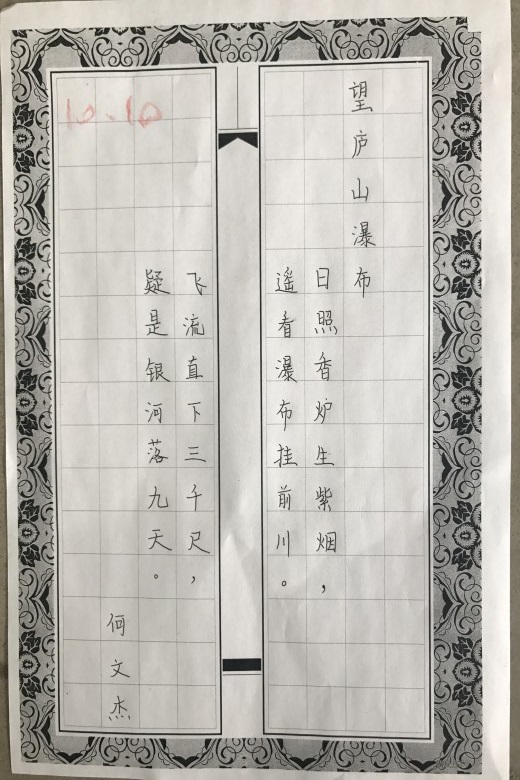 望庐山瀑布
日照香炉生紫烟，
遥看瀑布挂前川。
飞流直下三千尺，
疑是银河落九天。
何文杰
10.10